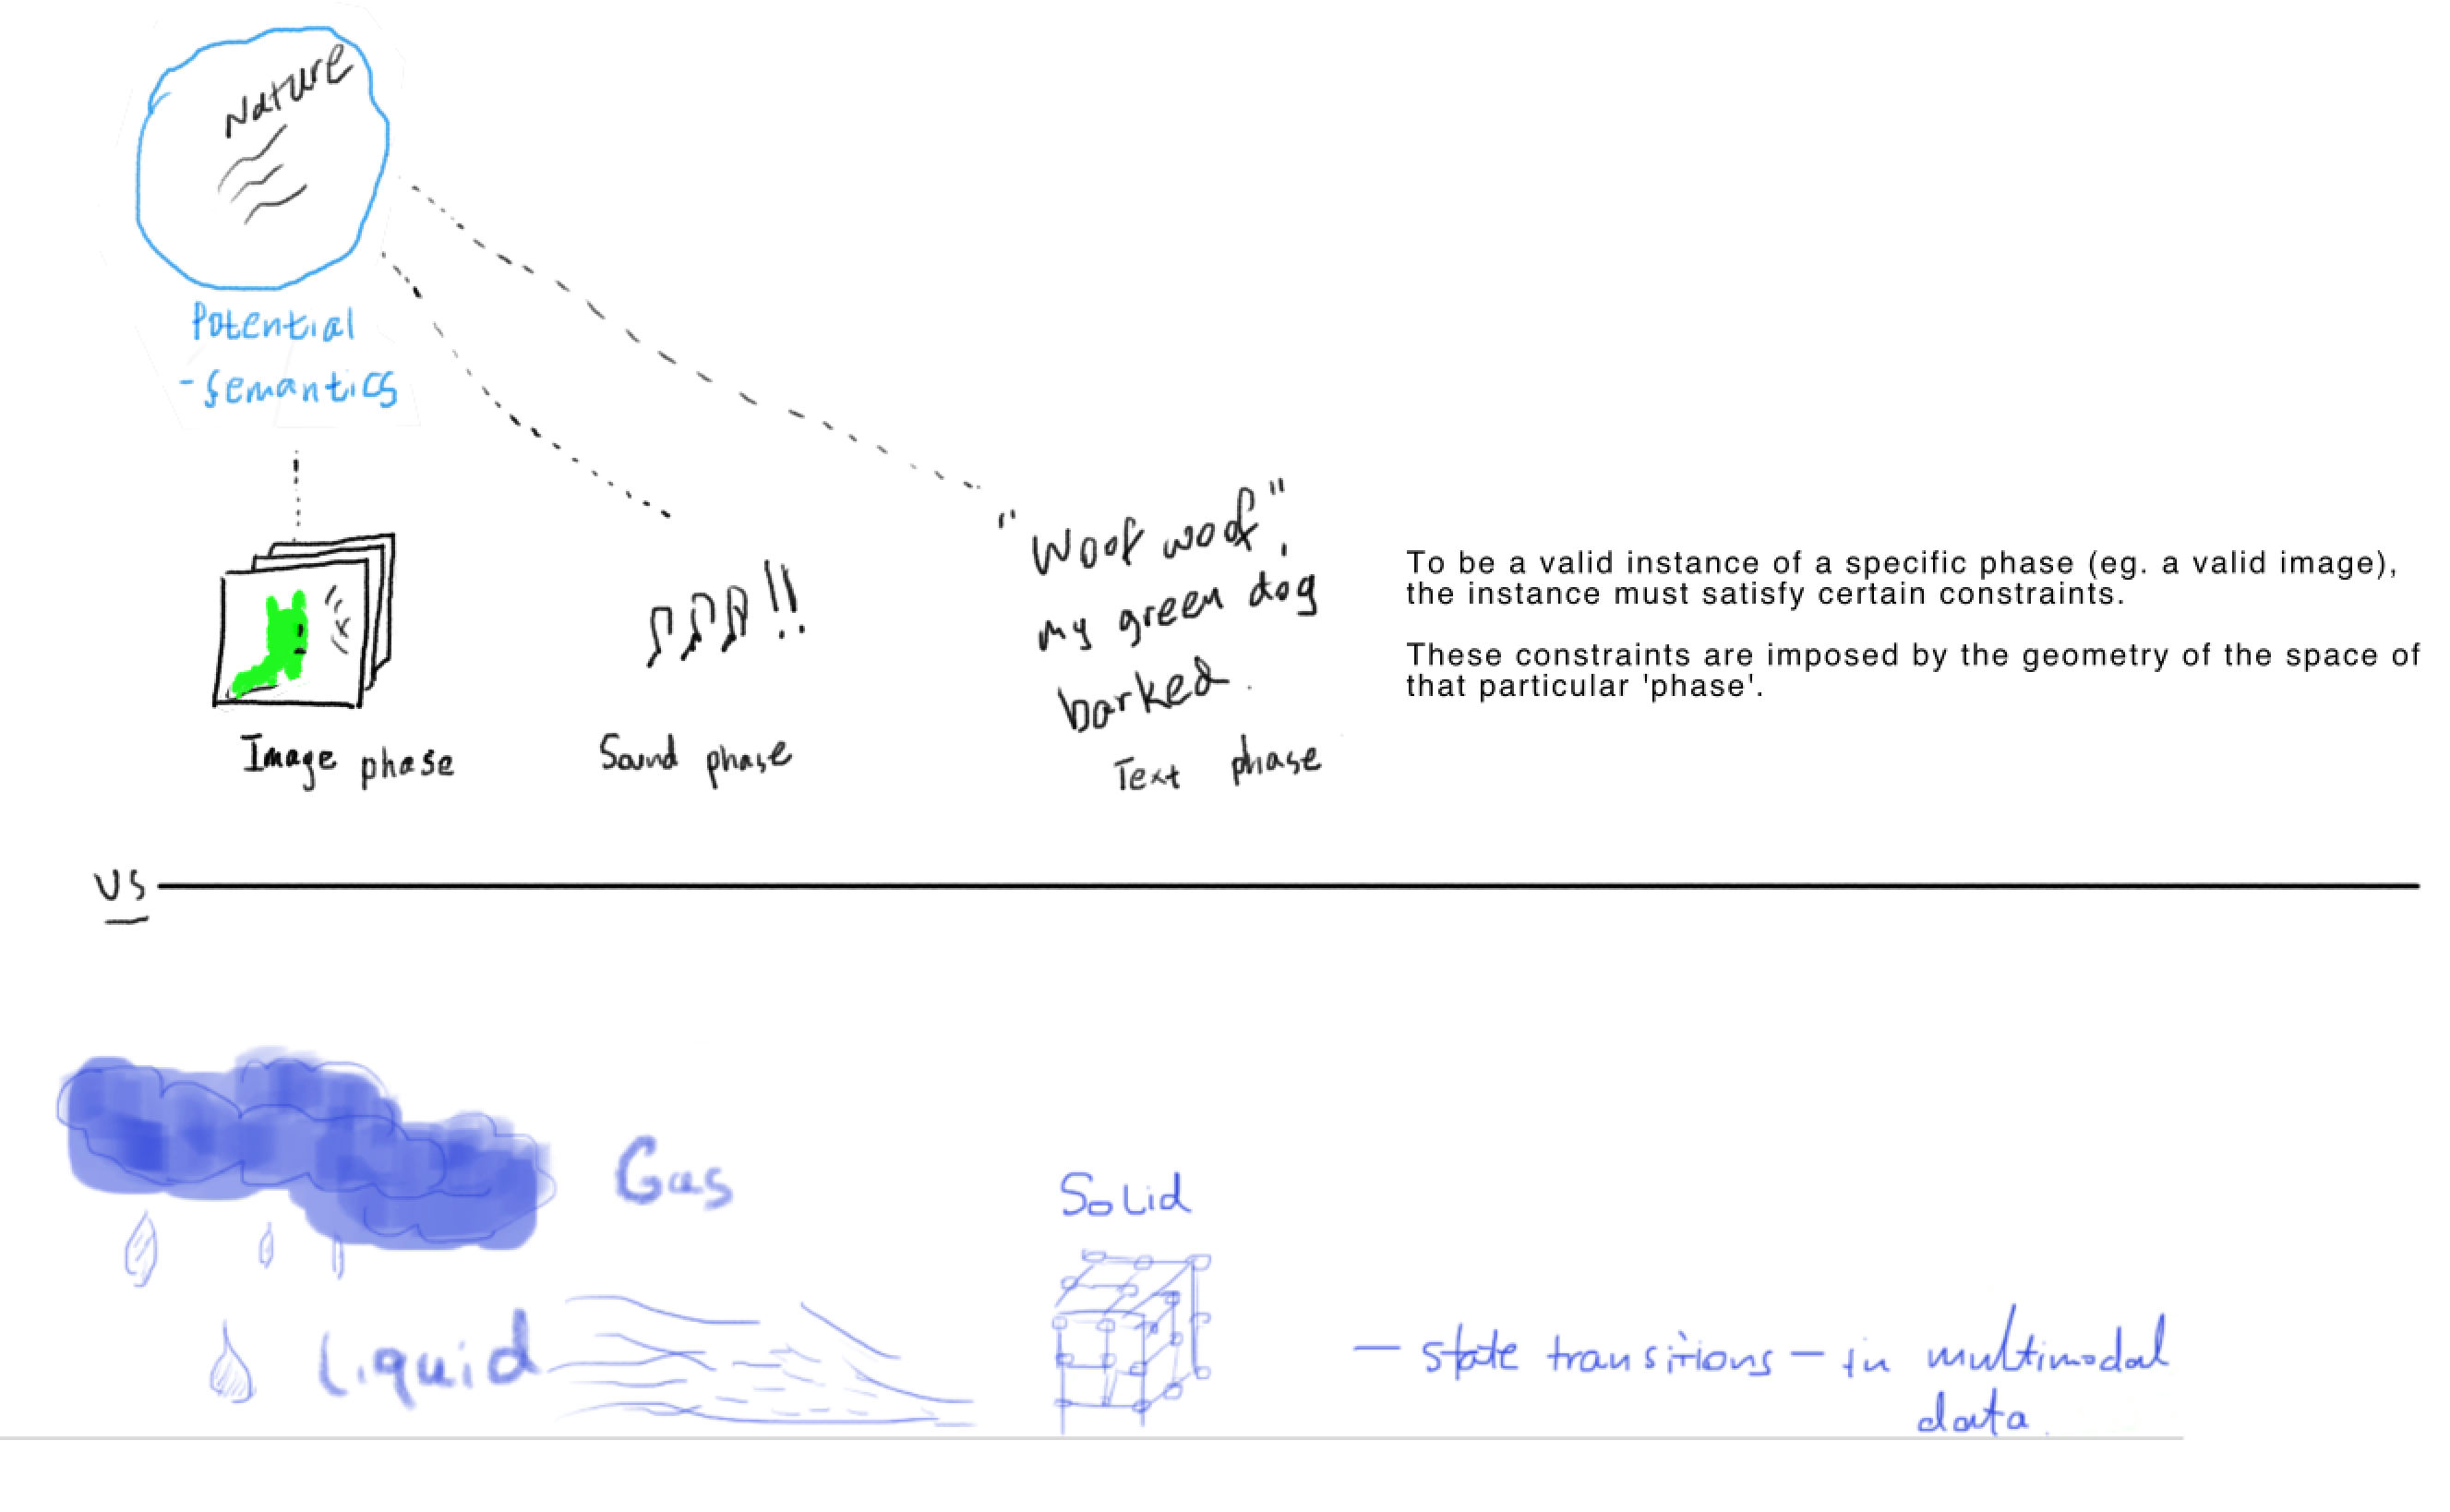 Nature
Potential
-Semantics
"Woof woof",
my green dog
barked.
Image phase
Sound phase
Text phase
To be a valid instance of a specific phase (eg. a valid image),
the instance must satisfy certain constraints.
These constraints are imposed by the geometry of the space of
that particular 'phase'.
VS
Gas
Solid
Liquid
— state transitions — in multimodal
data.